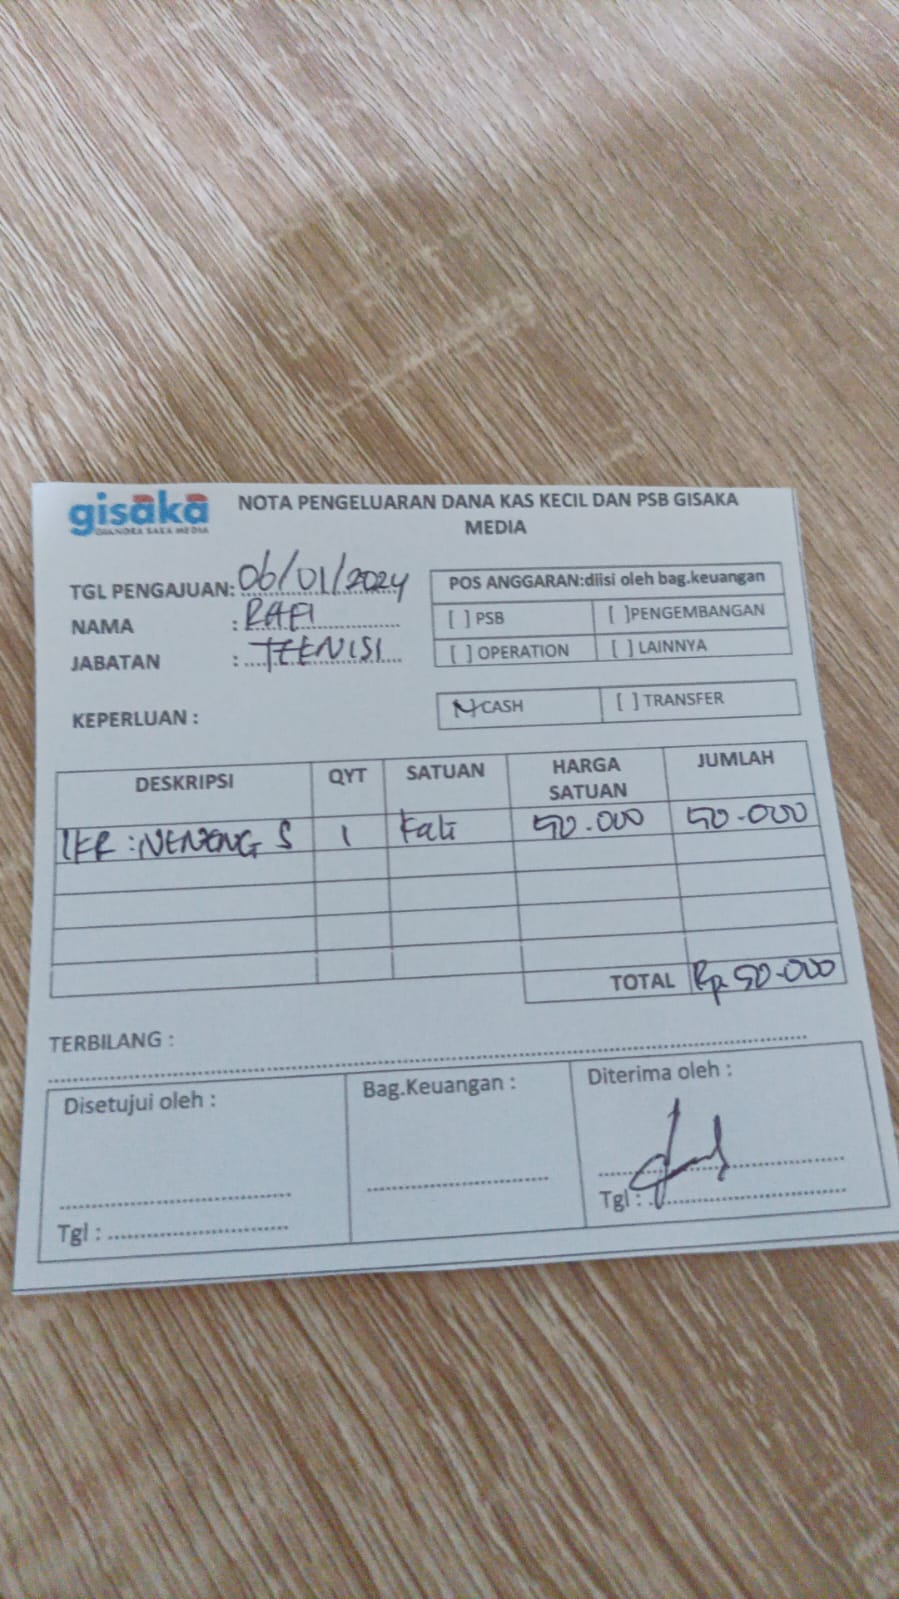 gisaka
CHANDRA SAKA MEDIA
NOTA PENGELUARAN DANA KAS KECIL DAN PSB GISAKA
MEDIA
TGL PENGAJUAN: 06/01/2024
NAMA : RAFI
JABATAN : TEKNISI
POS ANGGARAN:diisi oleh bag.keuangan
[ ] PSB [ ]PENGEMBANGAN
[ ] OPERATION [ ] LAINNYA
KEPERLUAN :
CASH [ ] TRANSFER
DESKRIPSI QYT SATUAN HARGA SATUAN JUMLAH
: NENENG S 1 Kali 50.000 50.000
TOTAL Rp 50.000
TERBILANG :
Disetujui oleh : Bag.Keuangan : Diterima oleh :
Tgl : Tgl :